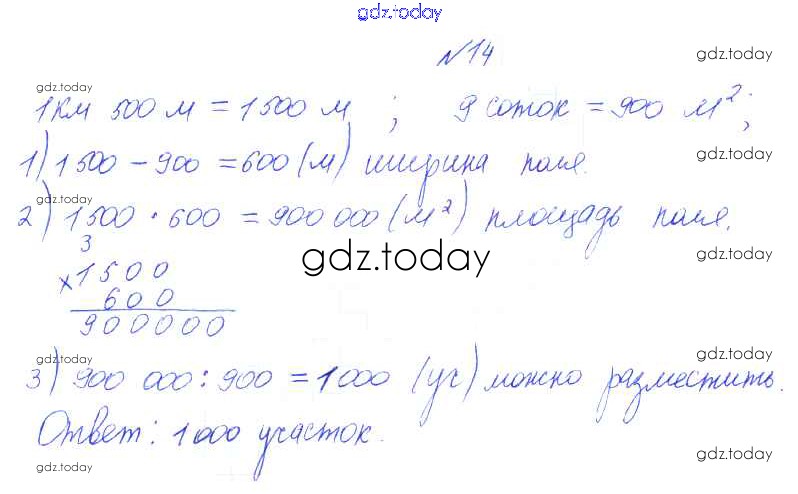 gdz.today
№14
gdz.today
gdz.today
1км 500 м = 1500 м ; 9 соток = 900 м²;
1) 1500 - 900 = 600 (м) ширина поля.
gdz.today
gdz.today
2) 1500 · 600 = 900 000 (м²) площадь поля.
3
gdz.today
gdz.today
×1500
600
900000
gdz.today
gdz.today
3) 900 000 : 900 = 1000 (уч) можно разместить.
Ответ: 1000 участок.
gdz.today
gdz.today